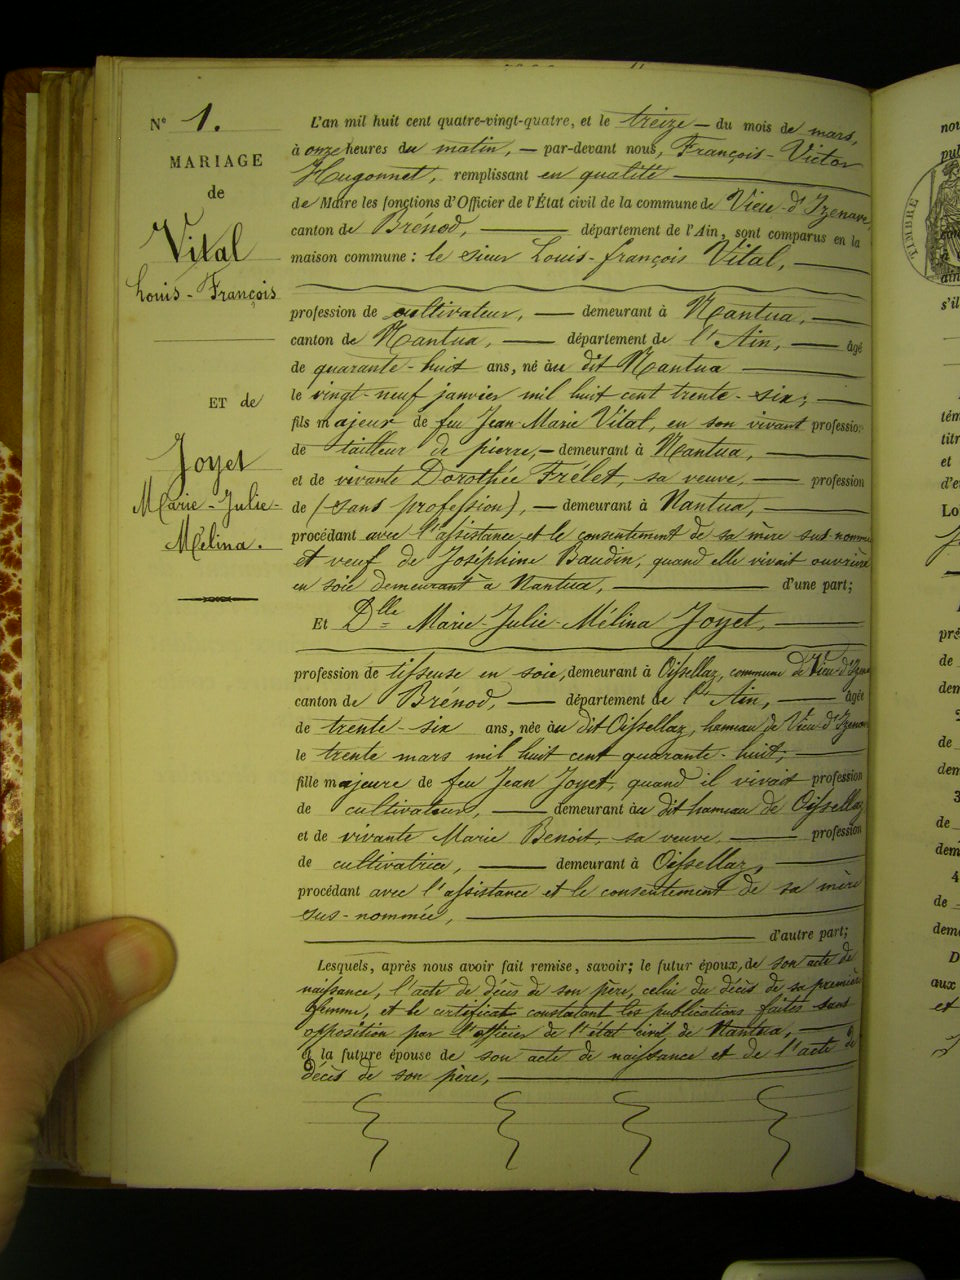 N° 1.
MARIAGE
de
Vital
Louis-François
ET de
Joyet
Marie-Julie-
Mélina.
L'an mil huit cent quatre-vingt-quatre, et le treize — du mois de mars,
à onze heures du matin, — par-devant nous, François-Victor
Hugonnet, remplissant en qualité
de Maire les fonctions d'Officier de l'État civil de la commune de Vieu-d'Izenave,
canton de Brénod, — département de l'Ain, sont comparus en la
maison commune : le sieur Louis-françois Vital,
profession de cultivateur, — demeurant à Nantua,
canton de Nantua, — département de l'Ain, — âgé
de quarante-huit ans, né au dit Nantua
le vingt-neuf janvier mil huit cent trente-six;
fils majeur de feu Jean-Marie Vital, en son vivant profession
de tailleur de pierre, — demeurant à Nantua,
et de vivante Dorothée Frélet, sa veuve, — profession
de (sans profession), — demeurant à Nantua,
procédant avec l'assistance et le consentement de sa mère sus-nommée
et veuf de Joséphine Baudin, quand elle vivait ouvrière
en soie demeurant à Nantua, — d'une part;
Et Dlle Marie-Julie-Mélina Joyet,
profession de tisseuse en soie, demeurant à Oissellaz, commune de Vieu-d'Izenave
canton de Brénod, — département de l'Ain, — âgée
de trente-six ans, née au dit Oissellaz, hameau de Vieu-d'Izenave
le trente mars mil huit cent quarante-huit;
fille majeure de feu Jean Joyet, quand il vivait profession
de cultivateur, — demeurant au dit hameau de Oissellaz
et de vivante Marie Benoit, sa veuve, — profession
de cultivatrice, — demeurant à Oissellaz,
procédant avec l'assistance et le consentement de sa mère
sus-nommée,
d'autre part;
Lesquels, après nous avoir fait remise, savoir; le futur époux, de son acte de
naissance, l'acte de décès de son père, celui du décès de sa première
femme, et le certificat constatant les publications faites sans
opposition par l'officier de l'état civil de Nantua,
la future épouse de son acte de naissance et de l'acte de
décès de son père,
TIMBRE